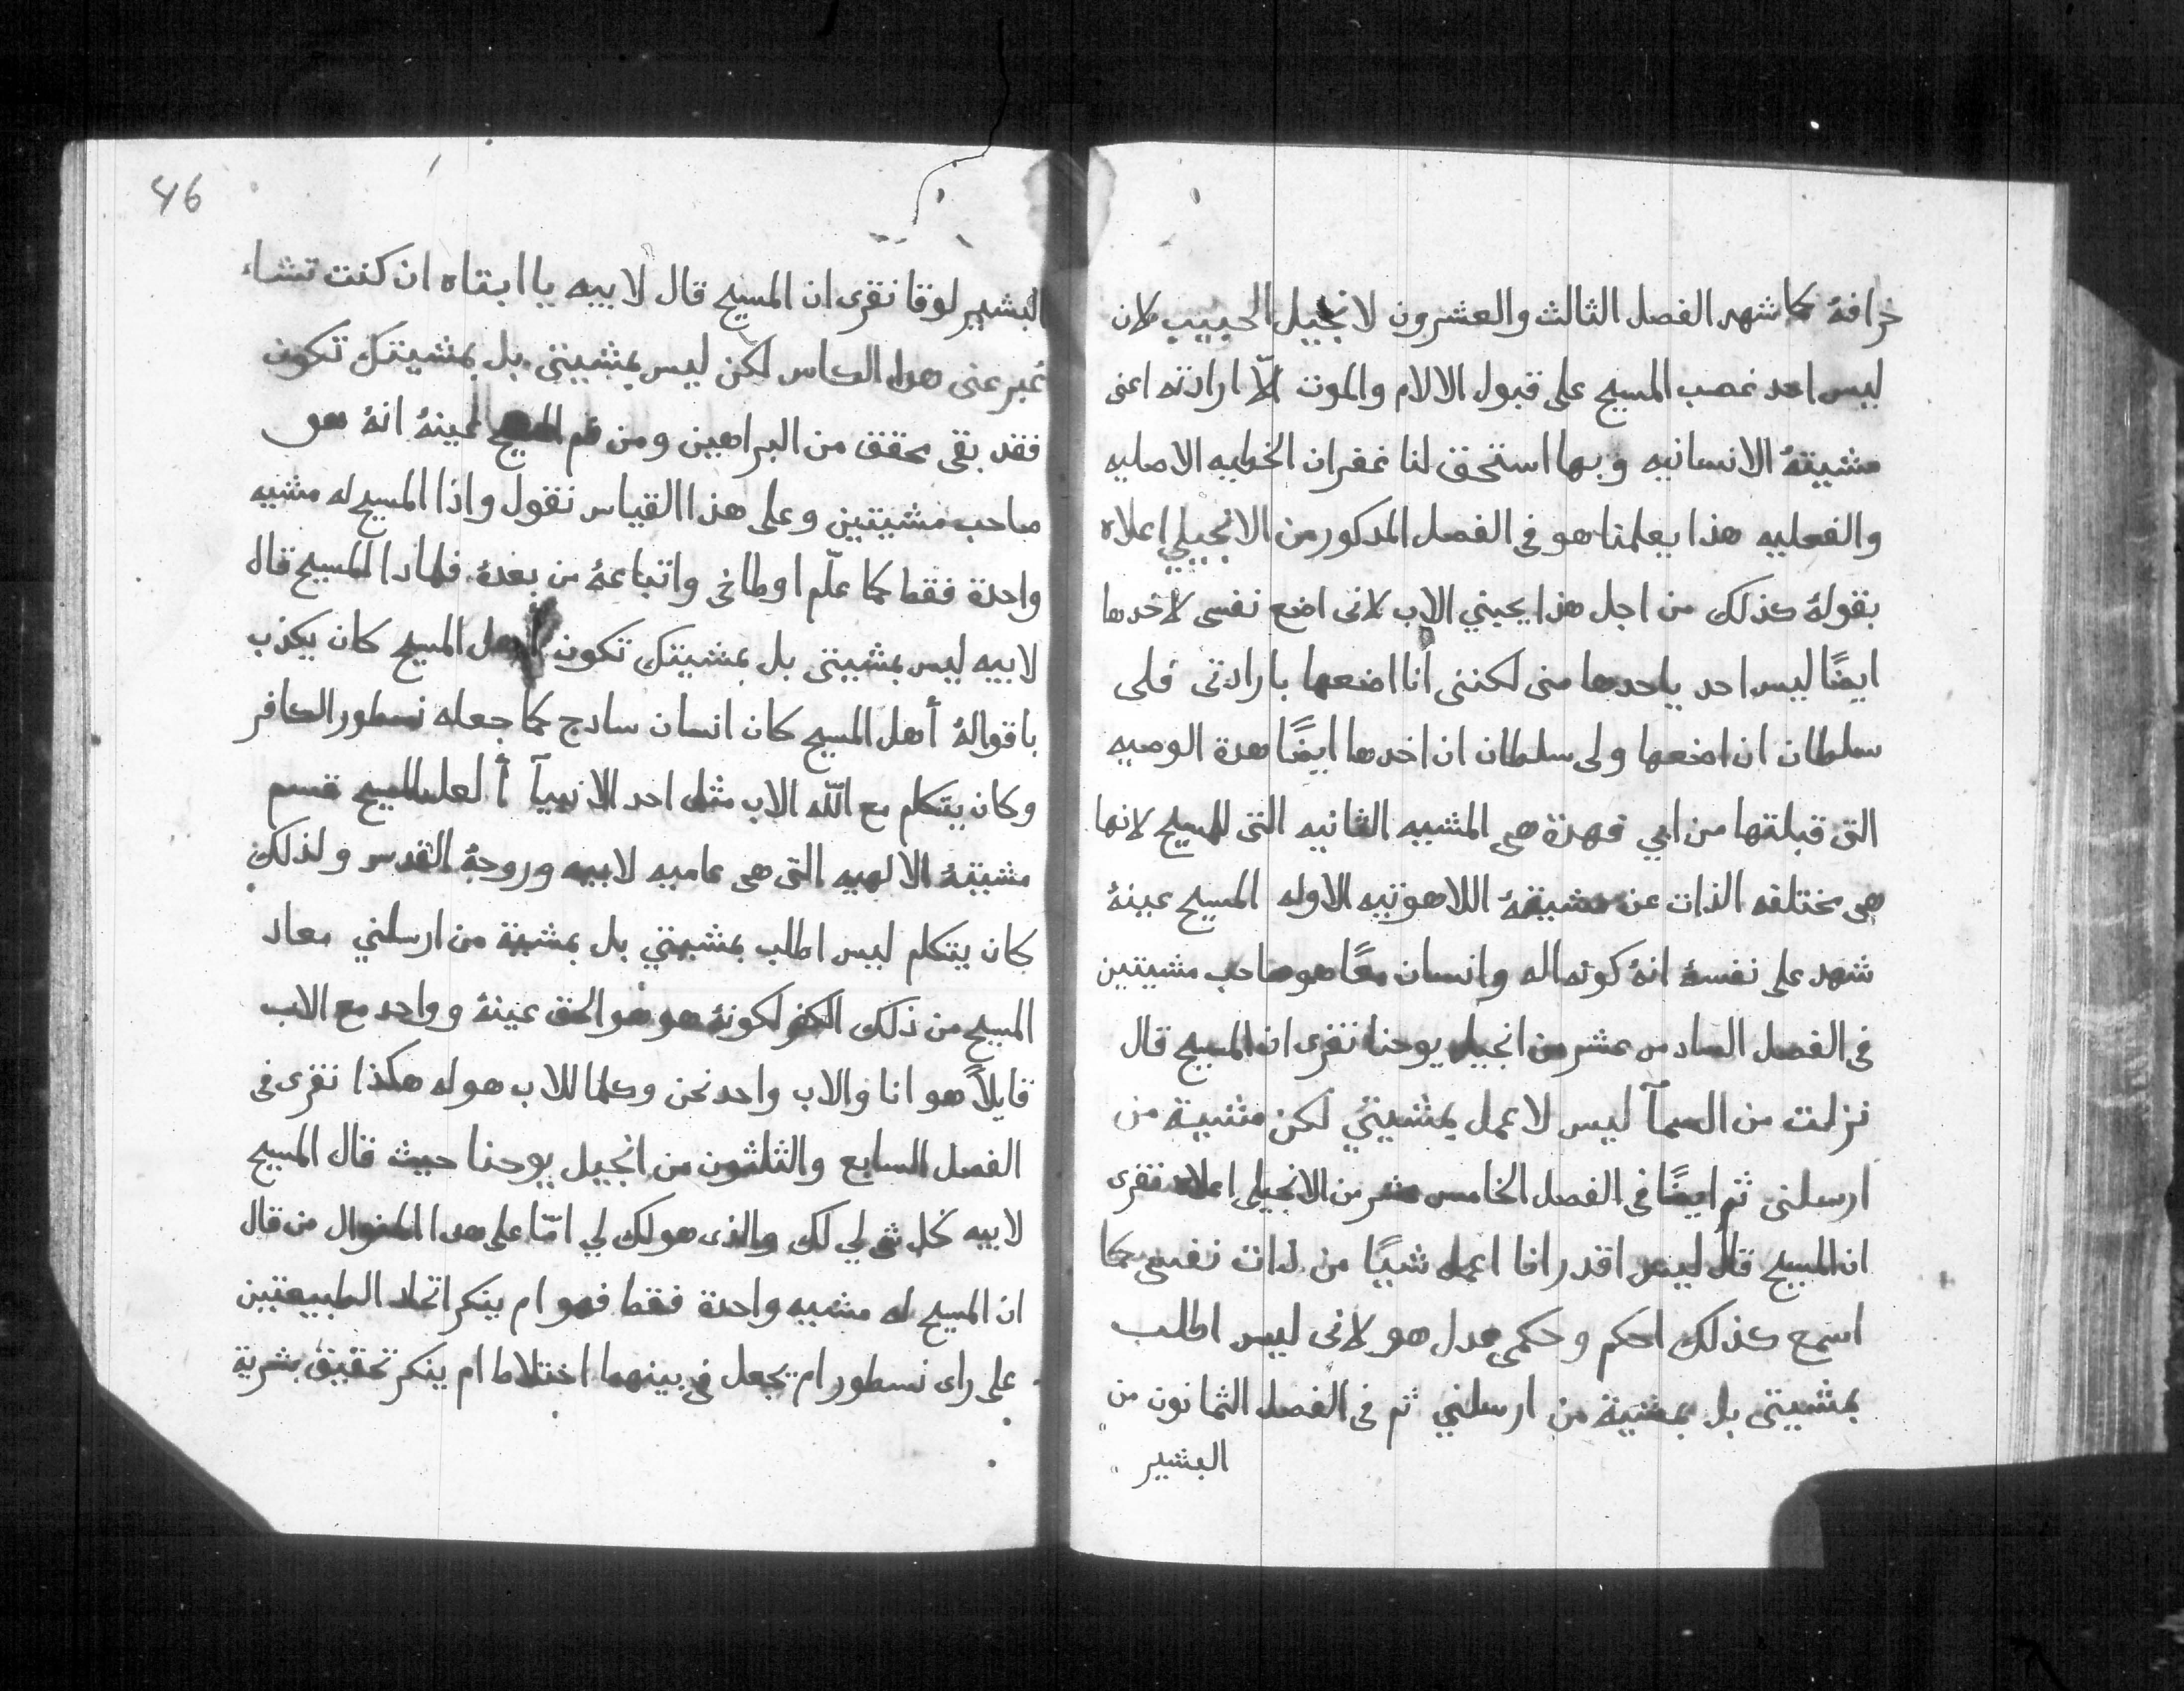 خرافهُ كما شهد الفصل الثالث والعشرون لانجيل الحبيب لان
ليس احد غصب المسيح على قبول الالام والموت الّا ارادته اعنى
مشيتهُ الانسانيه وبها استحق لنا غفران الخطيه الاصليه
والفعليه هذا يعلمنا هو فى الفصل المدكور من الانجيلي اعلاه
بقولهُ كذلك من اجل هذا يحبني الاب لانى اضع نفسى لاخدها
ايضًا ليس احد ياحدها منى لكننى أنا اضعها بارادتى فلى
سلطان ان اضعها ولى سلطان ان اخدها ايضًا هدة الوصيه
التى قبلتها من ابي فهدة هى المشييه الثانيه التى للمسيح لانها
هى مختلفه الذات عن مشيتهُ اللاهوتيه الاوله المسيح عينهُ
شهد على نفسهُ انهُ كونه اله وانسان معًا هو صاحب مشيتين
فى الفصل السادس عشر من انجيل يوحنا نقرى ان المسيح قال
نزلت من السمآ ليس لاعمل بمشيتي لكن مشية من
ارسلنى ثم ايضًا فى الفصل الخامس عشر من الانجيلى اعلاه نقرى
ان المسيح قال ليس اقدر انا اعمل شيًا من ذات نفسى كما
اسمع كذلك احكم وحكمي عدل هو لانى ليس اطلب
بمشيتى بل بمشية من ارسلني ثم فى الفصل الثمانون من
البشير
46
البشير لوقا نقرى ان المسيح قال لابيه يا ابتاه ان كنت تشاء
عبر عنى هدا الكاس لكن ليس بمشيتى بل بمشيتك تكون
فقد بقى محقق من البراهين ومن فم المسيح عينهُ انهُ هو
صاحب مشيتين وعلى هذا القياس نقول واذا المسيح له مشيه
واحدة فقط كما علّم اوطاخى واتباعهُ من بعدهُ فلمادا المسيح قال
لابيه ليس بمشيتى بل بمشيتك تكون أهل المسيح كان يكذب
باقوالهُ أهل المسيح كان انسان سادج كما جعله نسطور الكافر
وكان يتكلم مع اللّه الاب مثل احد الانبيآ ألعل المسيح قسم
مشيتهُ الالهيه التى هى عاميه لابيه وروحهُ القدس ولذلك
كان يتكلم ليس اطلب بمشيتي بل بمشية من ارسلني معاد
المسيح من ذلك الكفر لكونهُ هو هو الحق عينهُ وواحد مع الاب
قايلاً هو انا والاب واحد نحن وكلما للاب هو له هكذا نقرى فى
الفصل السابع والثلثون من انجيل يوحنا حيث قال المسيح
لابيه كل شى لي لك والذى هو لك لي امّا على هدا المنوال من قال
ان المسيح له مشييه واحدة فقط فهو ام ينكر اتحاد الطبيعتين
على راى نسطور ام يجعل فى بينهما اختلاط ام ينكر تحقيق بشرية